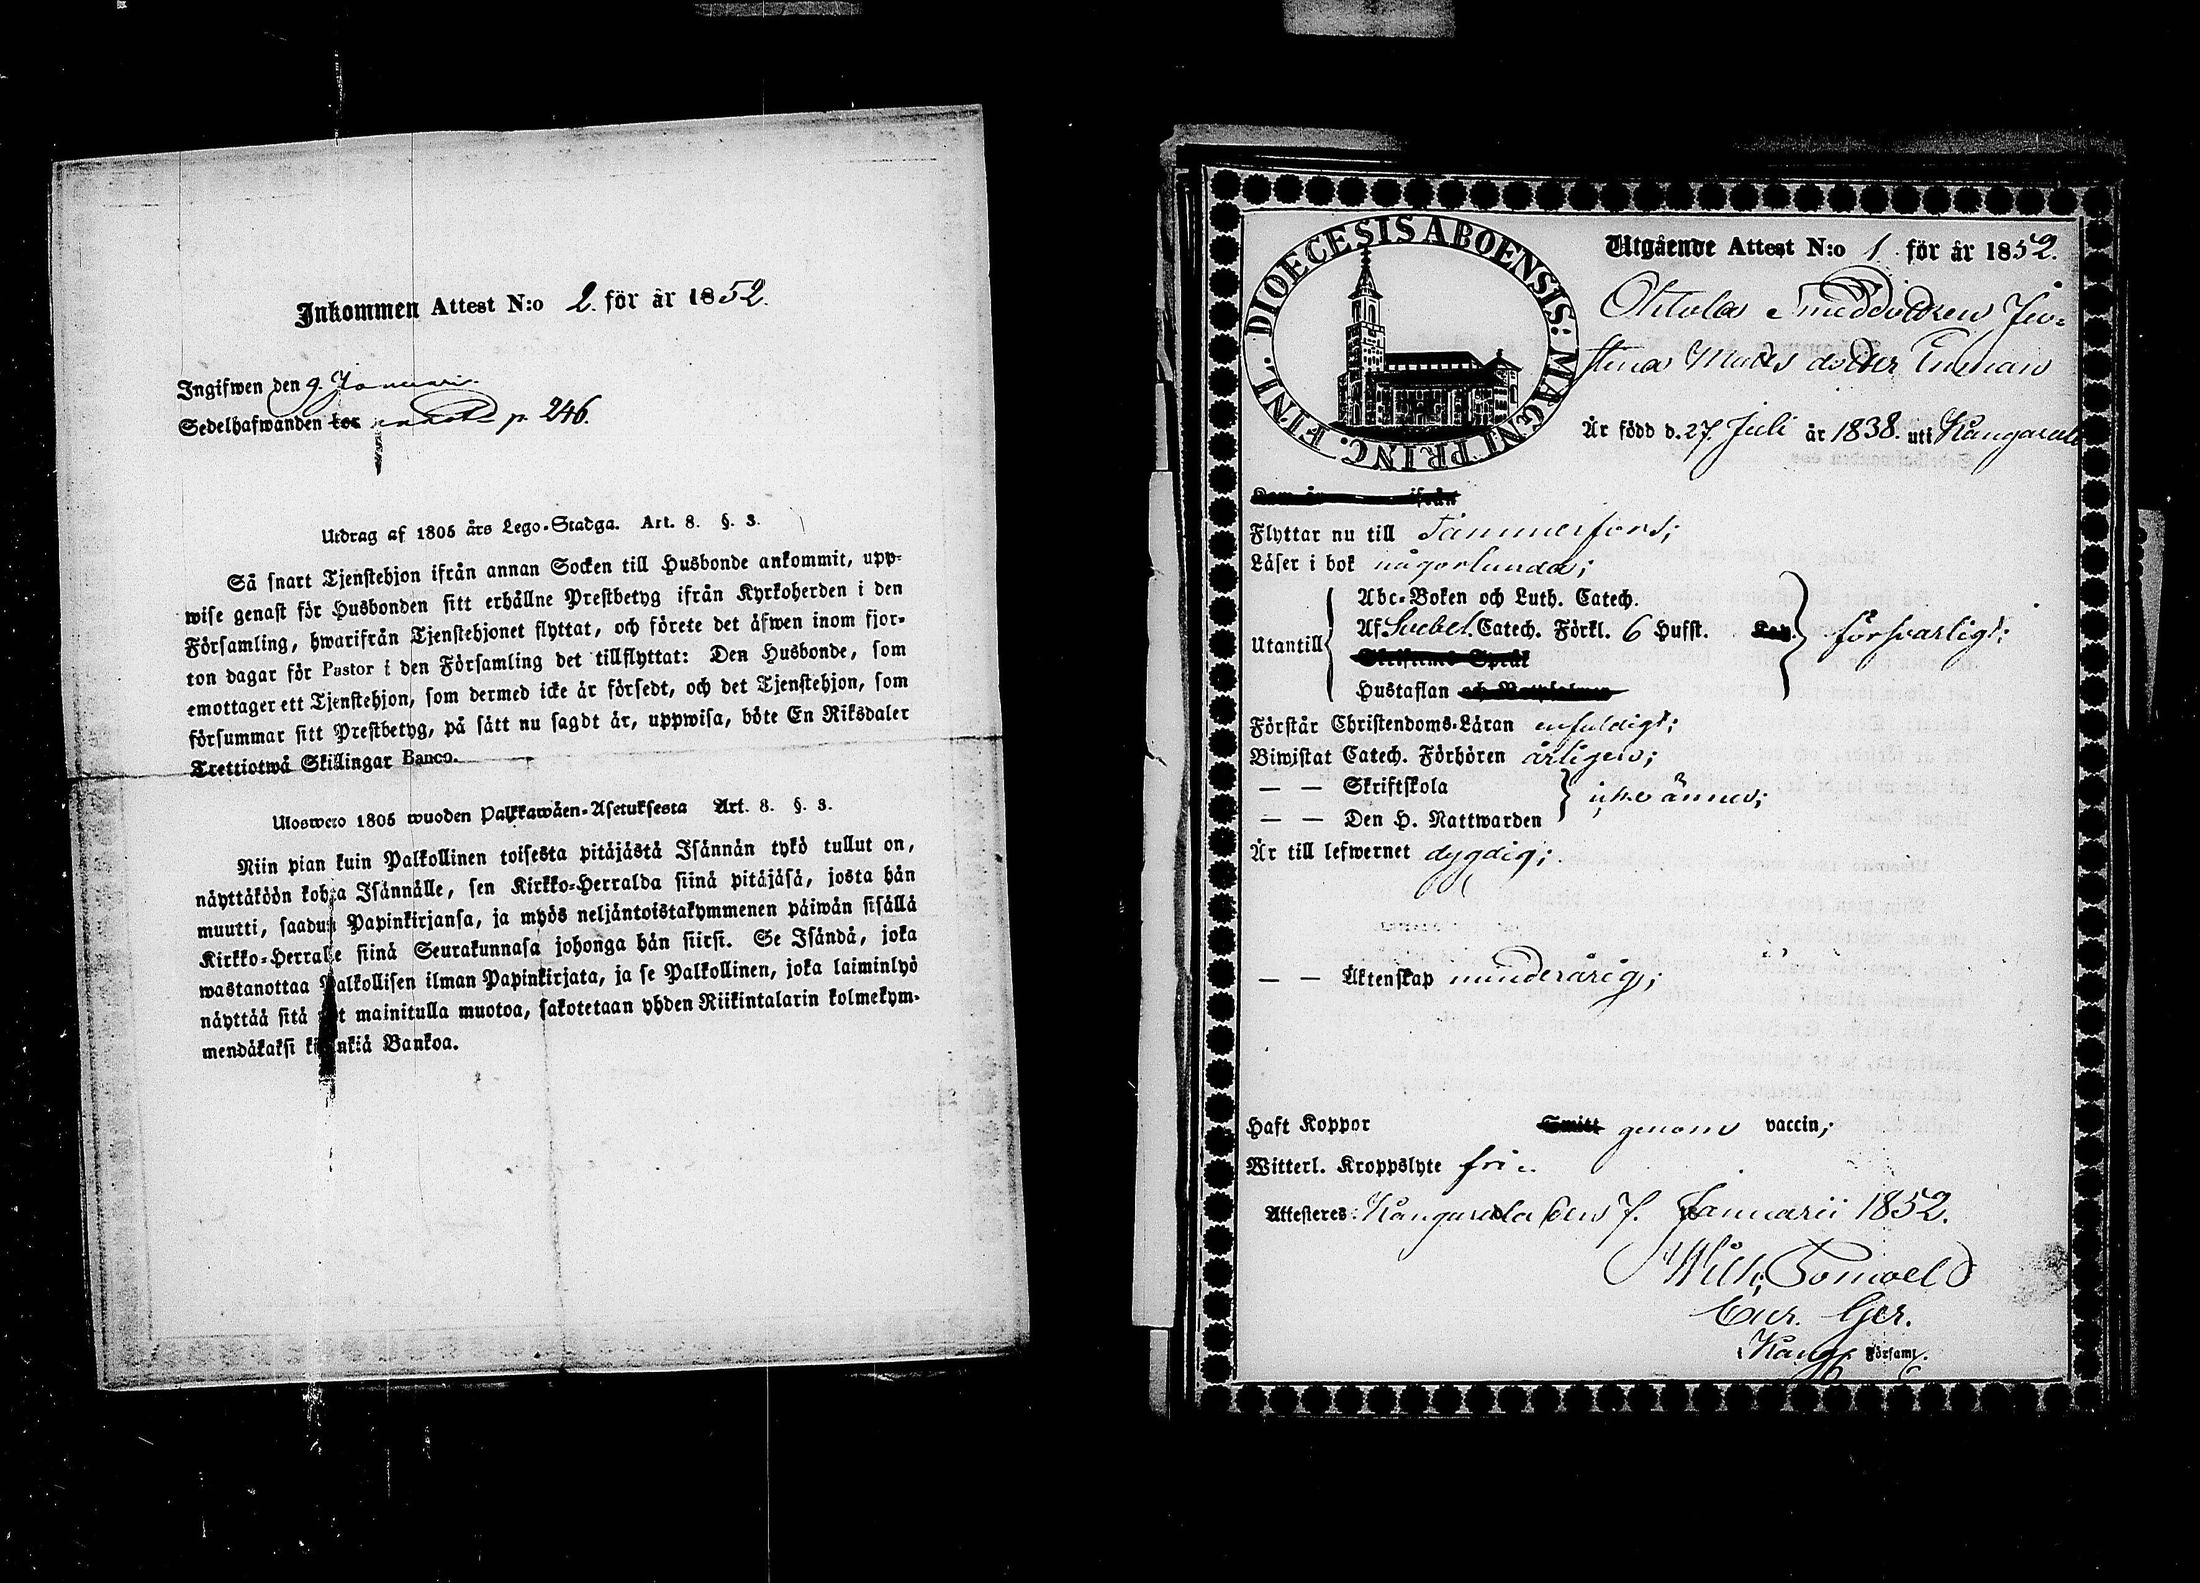 Inkommen Attest N:o 2. för år 1852.
Ingifwen den 9. Januari
Sedelhafwanden bor p. 246.
Utdrag af 1805 års Lego-Stadga. Art. 8. §. 3.
Så snart Tjenstehjon ifrån annan Socken till Husbonde ankommit, upp-
wise genast för Husbonden sitt erhållne Prestbetyg ifrån Kyrkoherden i den
Församling, hwarifrån Tjenstehjonet flyttat, och förete det äfwen inom fjor-
ton dagar för Pastor i den Församling det tillflyttat: Den Husbonde, som
emottager ett Tjenstehjon, som dermed icke är försedt, och det Tjenstehjon, som
försummar sitt Prestbetyg, på sätt nu sagdt är, uppwisa, böte En Riksdaler
Trettiotwå Skillingar Banco.
Ulosweto 1805 wuoden Palkkawäen-Asetuksesta Art. 8. §. 3.
Niin pian kuin Palkollinen toisesta pitäjästä Isännän tykö tullut on,
näyttäköön kohta Isännälle, sen Kirkko-Herralda siinä pitäjäsä, josta hän
muutti, saadun Papinkirjansa, ja myös neljäntoistakymmenen päiwän sisällä
Kirkko-Herralle siinä Seurakunnasa johonga hän siirsi. Se Isändä, joka
wastanottaa Palkollisen ilman Papinkirjata, ja se Palkollinen, joka laiminlyö
näyttää sitä nyt mainitulla muotoa, sakotetaan yhden Riikintalarin kolmekym-
mendäkaksi killinkiä Bankoa.
DIOECESIS ABOENSIS: MAGNI PRINC. FINL.
Utgående Attest N:o 1. för år 1852.
stina Matts dotter
Är född d. 27. Juli år 1838. uti Kangasala
Kom år ifrån
Flyttar nu till Tammerfors;
Läser i bok någorlunda;
Abc-Boken och Luth. Catech.
Utantill Af Svebel. Catech. Förkl. 6 Hufst. Kap. försvarligt;
Skriftenes Språk
Hustaflan och Nattpsalmen
Förstår Christendoms-Läran enfaldigt;
Biwistat Catech. Förhören årligen;
— — Skriftskola
icke ännu;
— — Den H. Nattwarden
Är till lefwernet dygdig;
— — Äktenskap minderårig;
Haft Koppor Smitt genom vaccin;
Witterl. Kroppslyte fri.
Attesteres: Kangasala den 7. Januarii 1852.
Wilh.
Cur. Ger.
Kang. Församl.